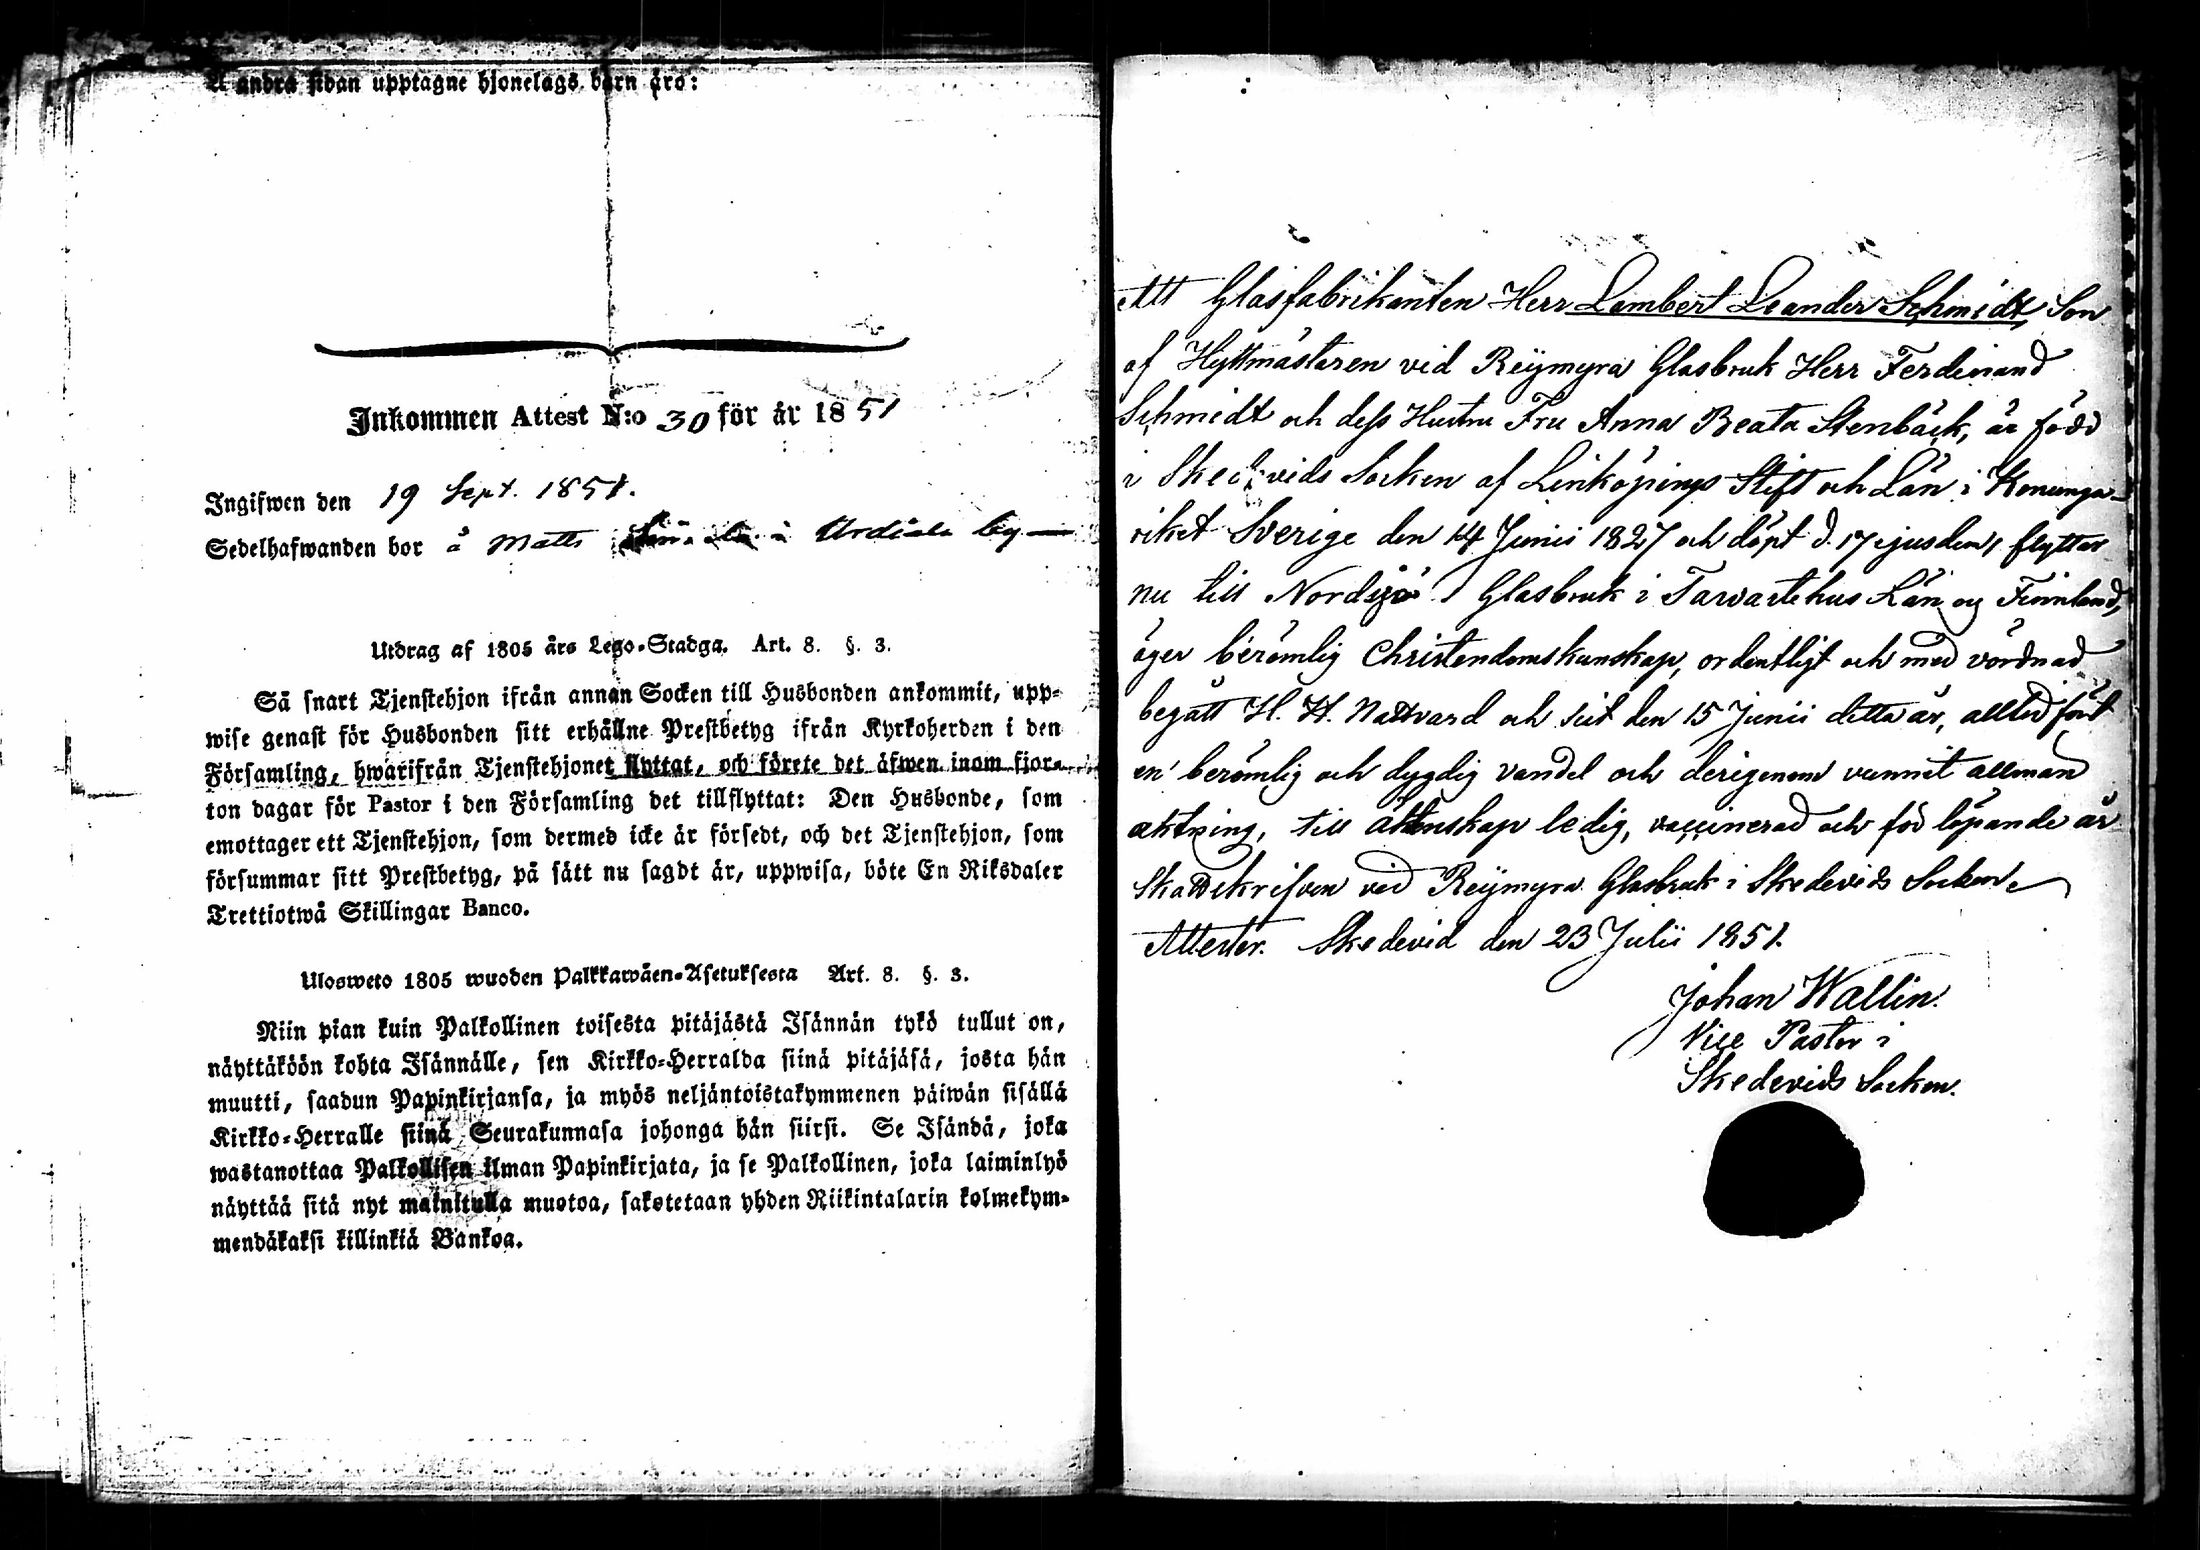 Å andra sidan upptagne hjonelags barn äro:
Inkommen Attest N:o 30 för år 1851
Ingifwen den 19 Sept. 1851.
Sedelhafwanden bor å Matts i Urdiala by
Utdrag af 1805 års Lego-Stadga. Art. 8. §. 3.
Så snart Tjenstehjon ifrån annan Socken till Husbonden ankommit, upp-
wise genast för Husbonden sitt erhållne Prestbetyg ifrån Kyrkoherden i den
Församling, hwarifrån Tjenstehjonet flyttat, och förete det äfwen inom fjor-
ton dagar för Pastor i den Församling det tillflyttat: Den Husbonde, som
emottager ett Tjenstehjon, som dermed icke är försedt, och det Tjenstehjon, som
försummar sitt Prestbetyg, på sätt nu sagdt är, uppwisa, böte En Riksdaler
Trettiotwå Skillingar Banco.
Ulosweto 1805 wuoden Palkkawäen-Asetuksesta Art. 8. §. 3.
Niin pian kuin Palkollinen toisesta pitäjästä Isännän tykö tullut on,
näyttäköön kohta Isännälle, sen Kirkko-Herralda siinä pitäjäsä, josta hän
muutti, saadun Papinkirjansa, ja myös neljäntoistakymmenen päiwän sisällä
Kirkko-Herralle siinä Seurakunnasa johonga hän siirsi. Se Isändä, joka
wastanottaa Palkollisen ilman Papinkirjata, ja se Palkollinen, joka laiminlyö
näyttää sitä nyt mainitulla muotoa, sakotetaan yhden Riikintalarin kolmekym-
mendäkaksi killinkiä Bankoa.
Att Glasfabrikanten Herr Lambert Leander Schmidt, Son
af Hyttmästaren vid Reijmyra Glasbruk Herr Ferdinand
Schmidt och dess Hustru Fru Anna Beata Stenbäck, är född
i Skedevids Socken af Linköpings Stift och Län i Konunga-
riket Sverige den 14 Junii 1827 och döpt d. 17 ejusdem, flyttar
nu till Nordsjö Glasbruk i Tavastehus Län og Finnland,
äger berömlig Christendomskunskap, ordentligt och med vördnad
begått H. H. Nattvard och sist den 15 Junii detta år, alltid fört
en berömlig och dygdig vandel och derigenom vunnit allmän
aktning, till äktenskap ledig, vaccinerad och för löpande år
skattskrifven vid Reijmyra Glasbruk i Skedevids Socken
Attester. Skedevid den 23 Julii 1851.
Johan Wallin.
Vice Pastor i
Skedevids Socken.